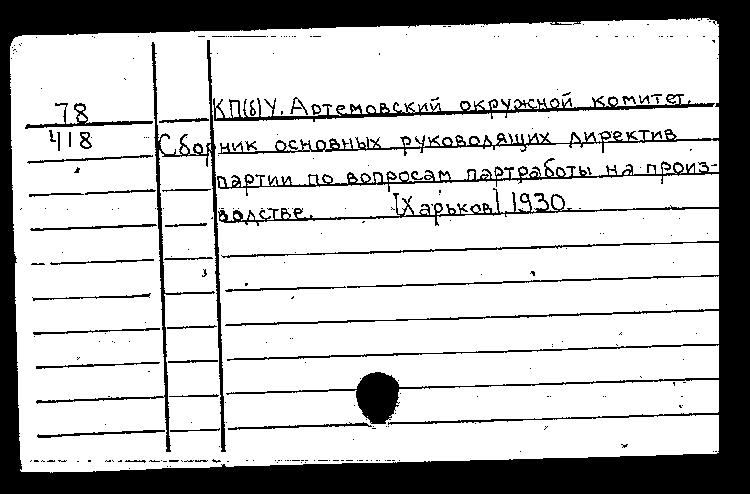 78
418
КП(б)У. Артемовский окружной комитет.
Сборник основных руководящих директив
партии по вопросам партработы на произ-
водстве. [Харьков], 1930.